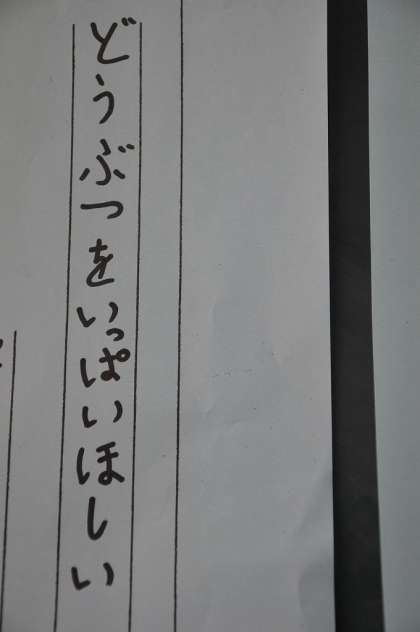 どうぶつをいっぱいほしい